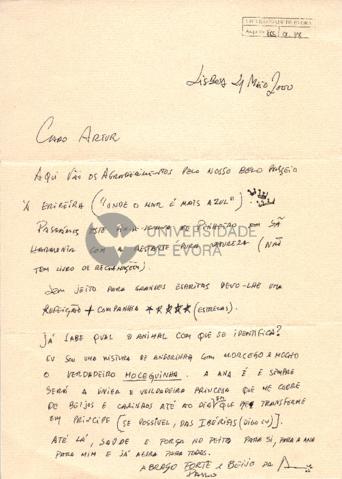 UNIVERSIDADE DE ÉVORA
LISBOA 24 MAIO 2000
CARO ARTUR
AQUI VÃO OS AGRADECIMENTOS PELO NOSSO BELO PASSEIO
À ERICEIRA ("ONDE O MAR É MAIS AZUL")
PASSÁMOS ESTE EM SÃ
HARMONIA COM A RESTANTE PURA NATUREZA (NÃO
TEM LIVRO DE RECLAMAÇÕES).
SEM JEITO PARA GRANDES ESCRITAS DEVO-LHE UMA
REFEIÇÃO + COMPANHIA ★★★★★ (ESTRELAS).
JÁ SABE QUAL O ANIMAL COM QUE SE IDENTIFICA?
EU SOU UMA MISTURA DE ANDORINHA COM MORCEGO E MOCHO
O VERDADEIRO MOCEGUINHA. A ANA É E SEMPRE
SERÁ A ÚNICA E VERDADEIRA PRINCESA QUE ME COBRE
DE BEIJOS E CARINHOS ATÉ AO DIA EM QUE ME TRANSFORME
EM PRINCIPE (SE POSSÍVEL, DAS IBÉRIAS (DIGO EU)).
ATÉ LÁ, SAÚDE E FORÇA NO PEITO PARA SI, PARA A ANA
PARA MIM E JÁ AGORA PARA TODOS.
ABRAÇO FORTE E BEIJO DA
PAULO
UNIVERSIDADE
DE ÉVORA